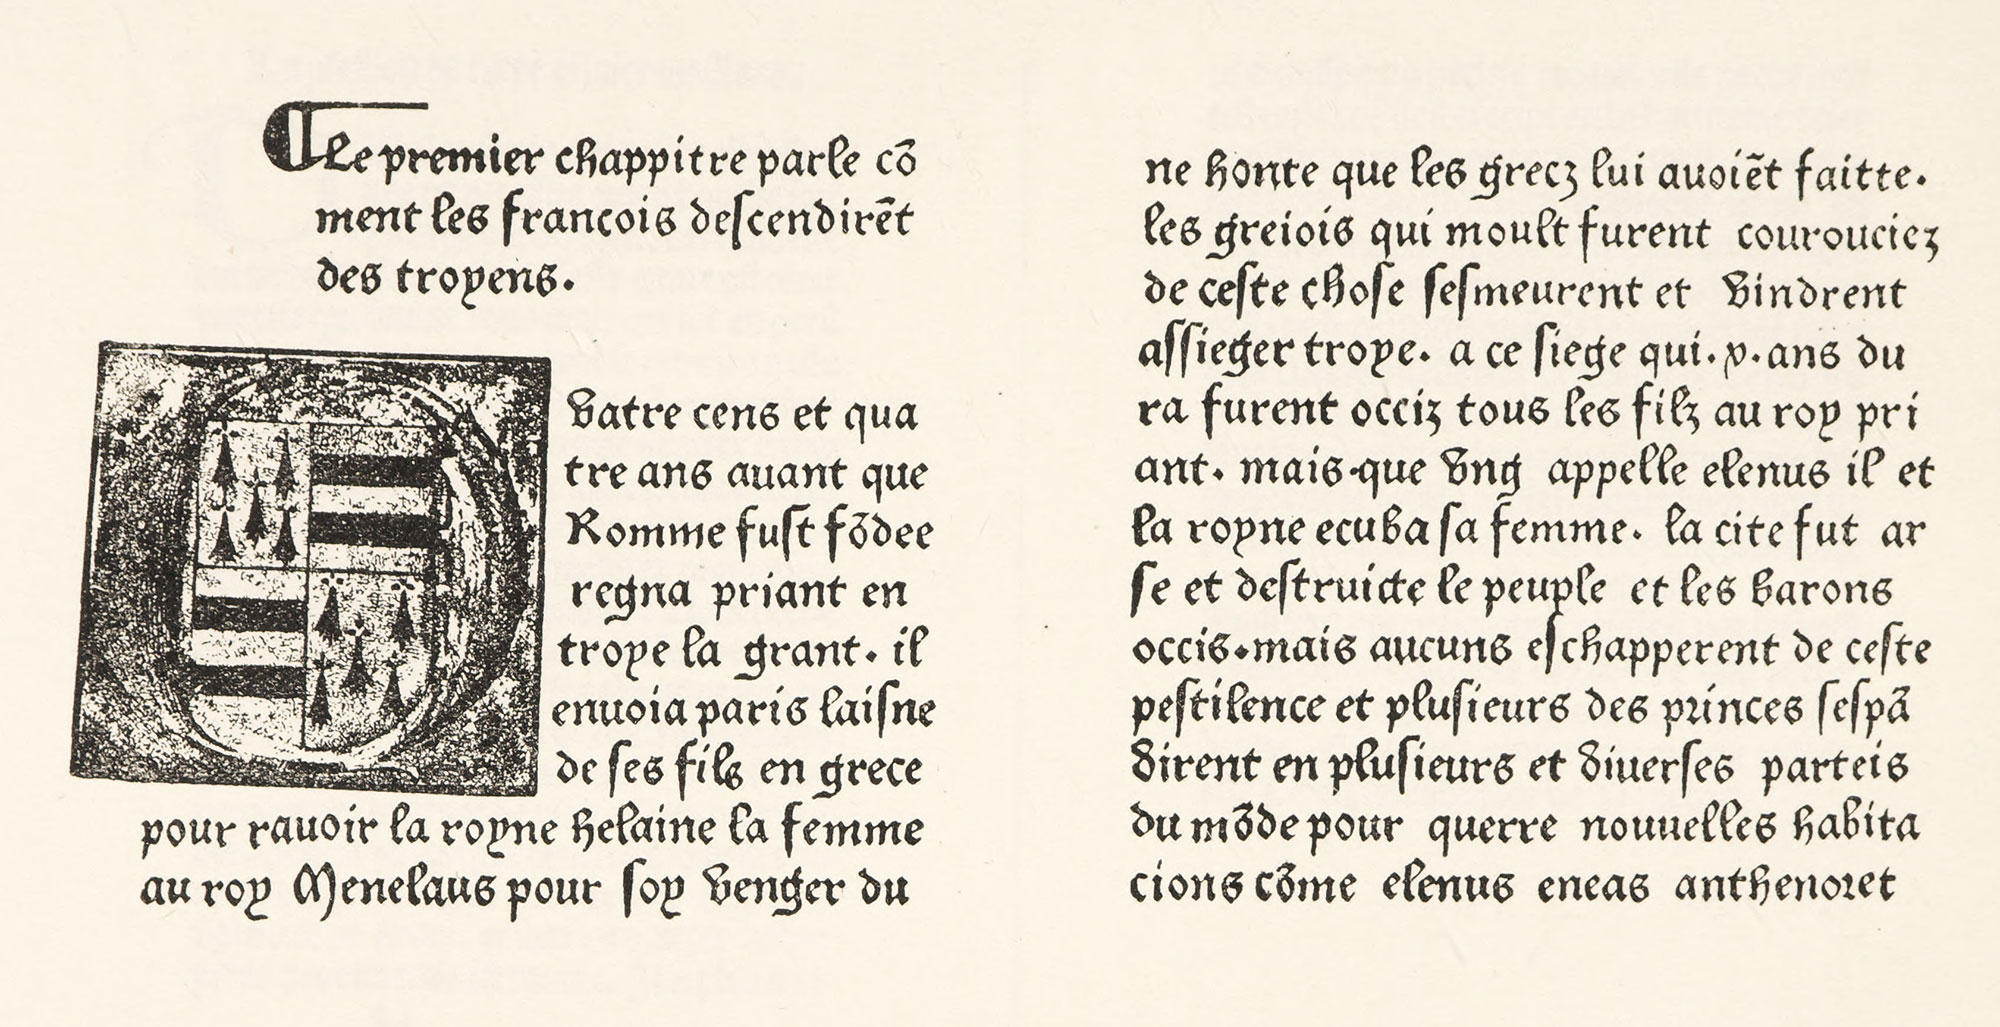 ¶Le premier chappitre parle cõ
ment les francois deſcendirẽt
des troyens.
Vatre cens et qua
tre ans auant que
Romme fuſt fõdee
regna priant en
troye la grant. il
enuoia paris laiſne
de ſes fils en grece
pour rauoir la royne helaine la femme
au roy Menelaus pour ſoy venger du
ne honte que les grecz lui auoiẽt faitte.
les greiois qui moult furent courouciez
de ceſte choſe ſeſmeurent et vindrent
aſſieger troye. a ce ſiege qui.x.ans du
ra furent occiz tous les filz au roy pri
ant. mais que vng appelle elenus il et
la royne ecuba ſa femme. la cite fut ar
ſe et deſtruicte le peuple et les barons
occis.mais aucuns eſchapperent de ceſte
peſtilence et pluſieurs des princes ſeſpã
dirent en pluſieurs et diuerſes parteis
du mõde pour querre nouuelles habita
cions cõme elenus eneas anthenoret